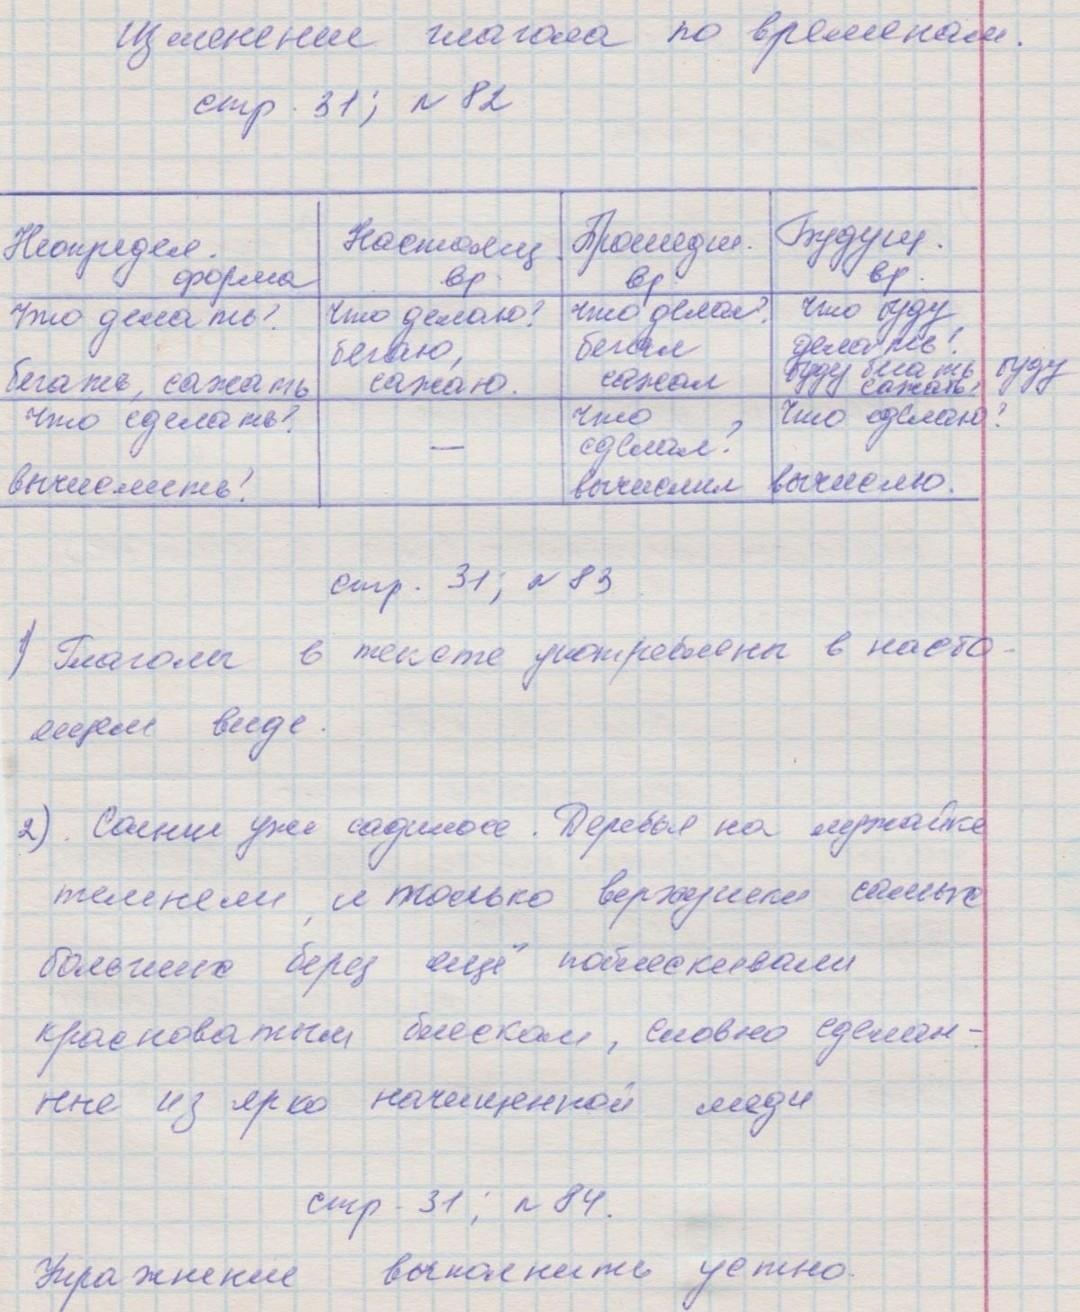 Изменение глагола по временам.
стр. 31; № 82
Неопредел. форма
Настоящ. вр.
Прошедш. вр.
Будущ. вр.
Что делать?
бегать, сажать
Что делаю?
бегаю,
сажаю.
Что делал?
бегал
сажал
Что буду
делать?
буду бегать, буду
сажать.
Что сделать?
вычислить!
—
Что
сделал?
вычислил
Что сделаю?
вычислю.
стр. 31; № 83
1) Глаголы в тексте употреблены в насто-
ящем виде.
2). Солнце уже садилось. Деревья на лужайке
темнели, и только верхушки самых
больших берез ещё поблескивали
красноватым блеском, словно сделан-
нне из ярко начищенной меди
стр. 31; № 84.
Упражнение выполнить устно.